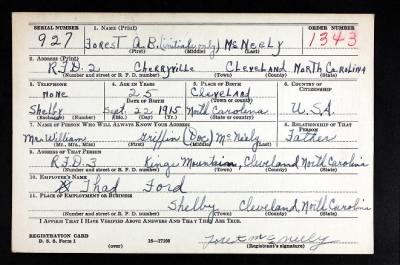 SERIAL NUMBER 1. NAME (Print) ORDER NUMBER
927 Forest A.B. (initials only) McNeely 1343
(First) (Middle) (Last)
2. ADDRESS (Print)
R.F.D. 2 Cherryville Cleveland North Carolina
(Number and street or R. F. D. number) (Town) (County) (State)
3. TELEPHONE 4. AGE IN YEARS 5. PLACE OF BIRTH 6. COUNTRY OF CITIZENSHIP
None 25 Cleveland
(Town or county)
Shelby Sept 22 1915 North Carolina U.S.A.
(Exchange) (Number) (Mo.) (Day) (Yr.) (State or country)
7. NAME OF PERSON WHO WILL ALWAYS KNOW YOUR ADDRESS 8. RELATIONSHIP OF THAT PERSON
Mr. William Griffin (Doc) McNeely Father
(Mr., Mrs., Miss) (First) (Middle) (Last)
9. ADDRESS OF THAT PERSON
R.F.D. 3 Kings Mountain, Cleveland North Carolina
(Number and street or R. F. D. number) (Town) (County) (State)
10. EMPLOYER'S NAME
Thad Ford
11. PLACE OF EMPLOYMENT OR BUSINESS
Shelby Cleveland, North Carolina
(Number and street or R. F. D. number) (Town) (County) (State)
I AFFIRM THAT I HAVE VERIFIED ABOVE ANSWERS AND THAT THEY ARE TRUE.
REGISTRATION CARD
D. S. S. Form 1 (over) 16—17105 Forest McNeely
(Registrant's signature)